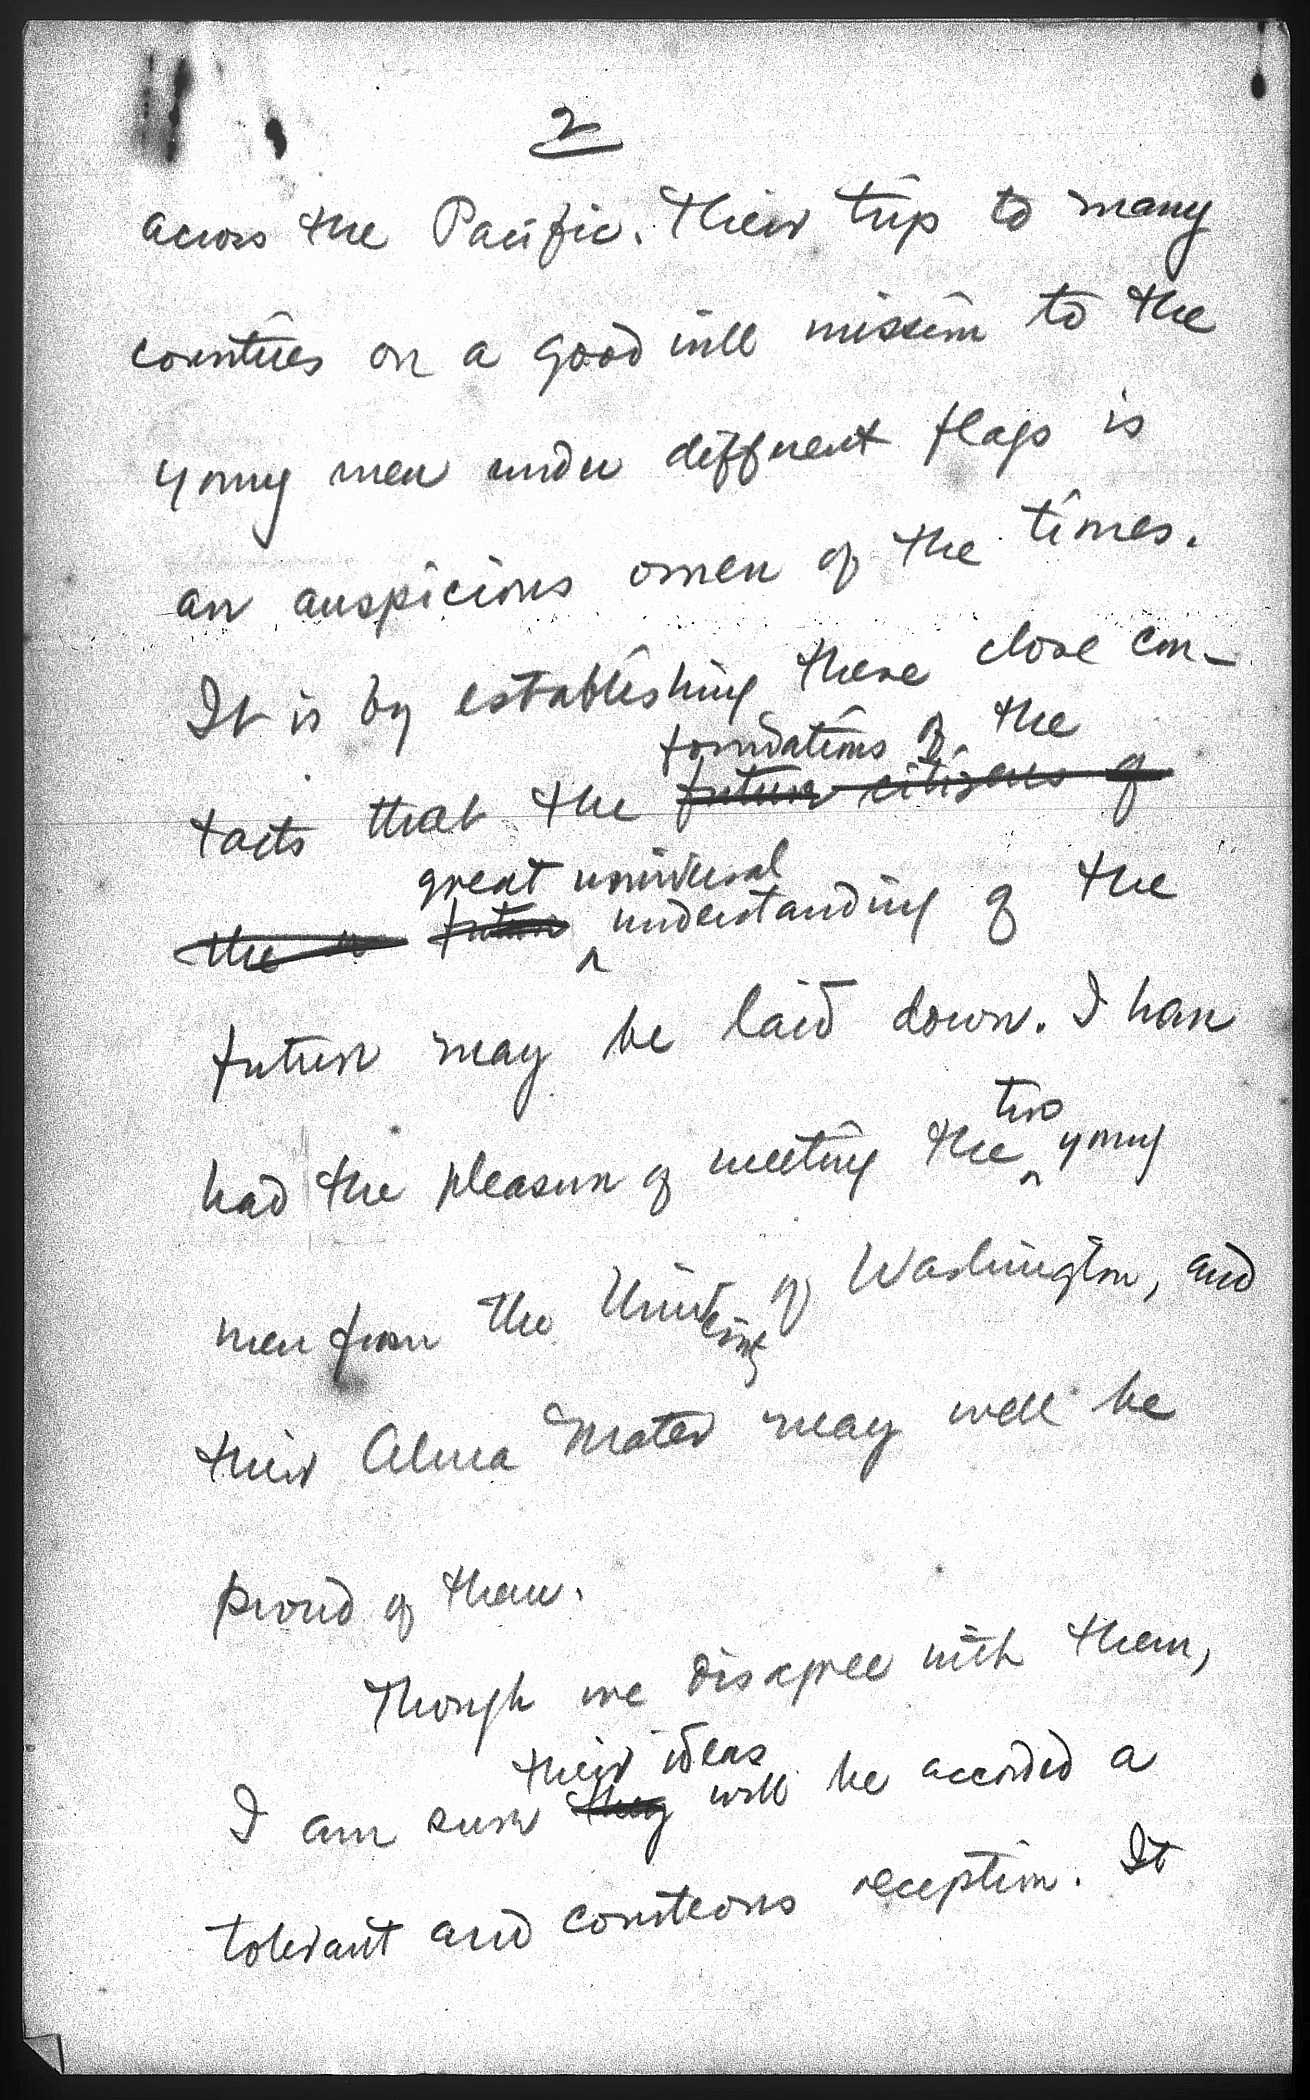 2
across the Pacific. Their trip to many
countries on a good will mission to the
young men under different flags is
an auspicious omen of the times.
It is by establishing these close con-
foundations of the
tacts that the future citizens of
great universal
the future understanding of the
future may be laid down. I have
two
had the pleasure of meeting the young
men from the University of Washington, and
their Alma Mater may well be
proud of them.
Though we disagree with them,
their ideas
I am sure they will be accorded a
tolerant and courteous reception. It